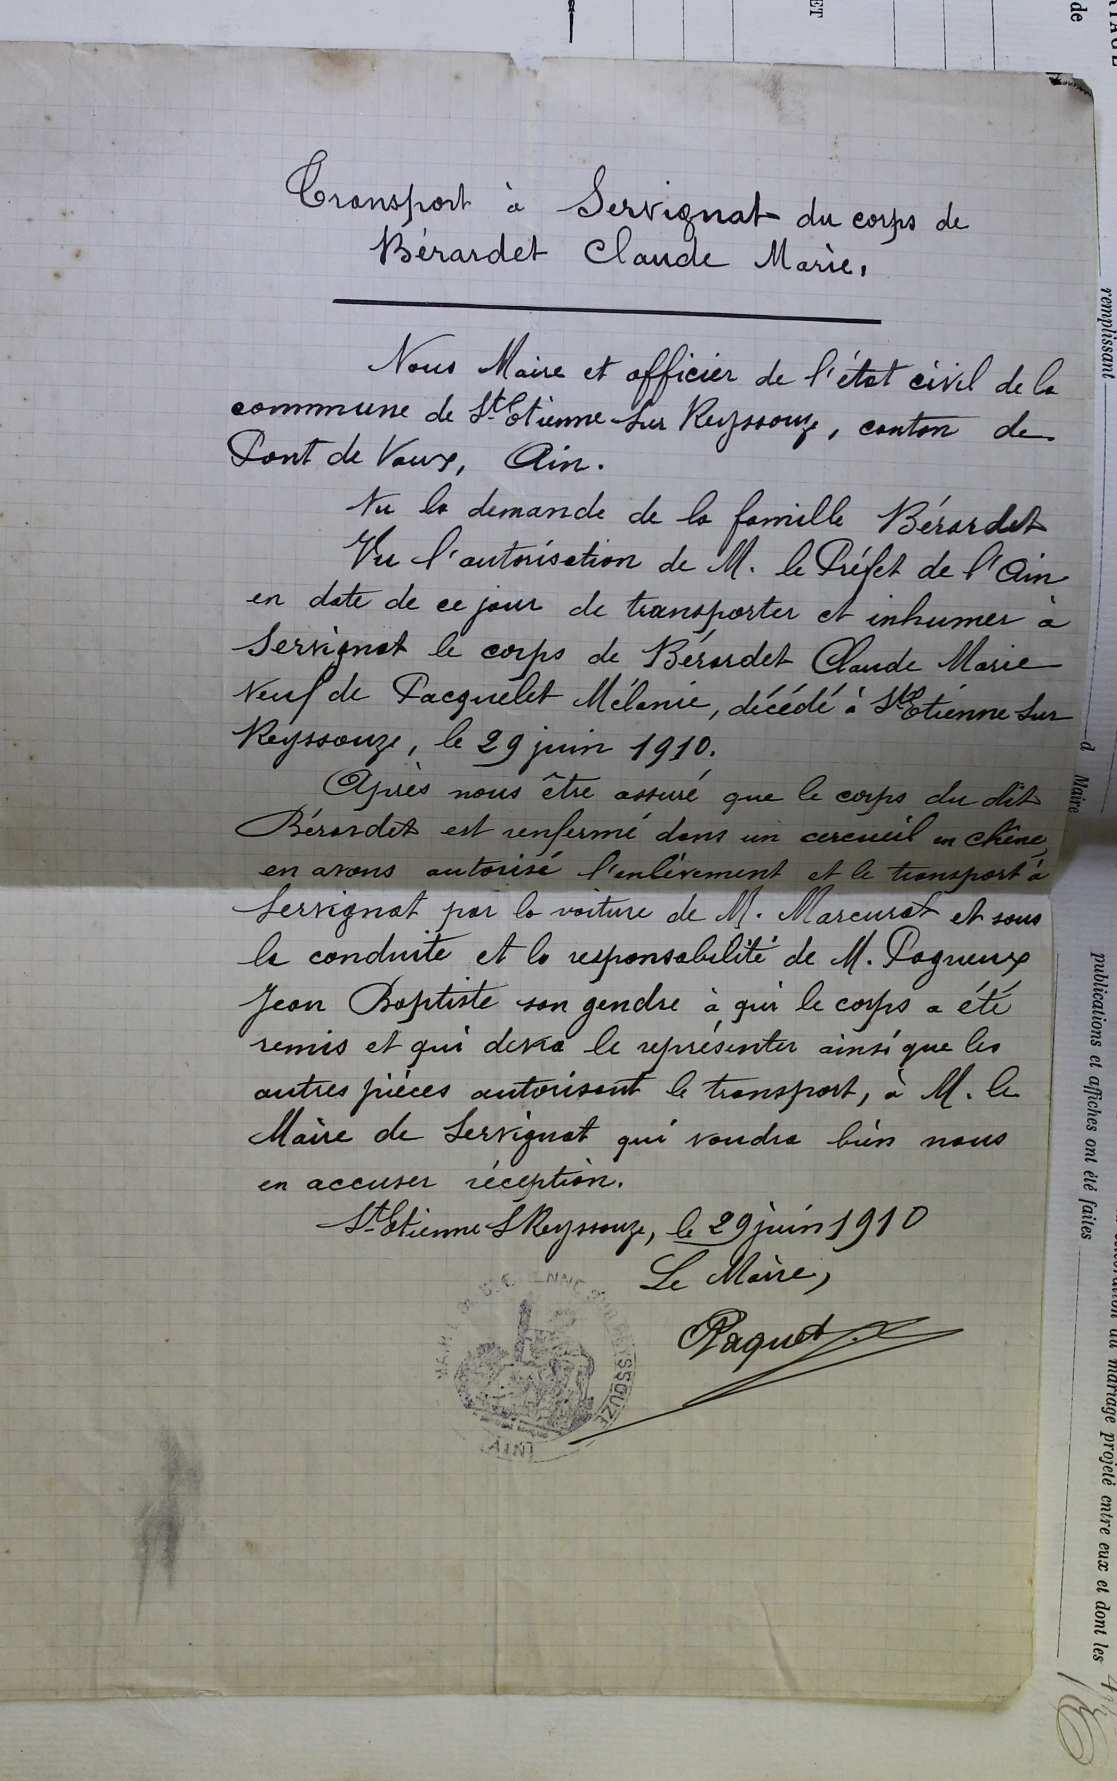 Transport à Servignat du corps de
Bérardet Claude Marie,
Nous Maire et officier de l'état civil de la
commune de St Etienne sur Reyssouze, canton de
Pont de Vaux, Ain.
Vu la demande de la famille Bérardet
Vu l'autorisation de M. le Préfet de l'Ain
en date de ce jour de transporter et inhumer à
Servignat le corps de Bérardet Claude Marie
veuf de Pacquelet Mélanie, décédé à St Etienne sur
Reyssouze, le 29 juin 1910.
Après nous être assuré que le corps du dit
Bérardet est renfermé dans un cercueil en chêne,
en avons autorisé l'enlèvement et le transport à
Servignat par la voiture de M. Marcurat et sous
la conduite et la responsabilité de M. Pagneux
Jean Baptiste son gendre à qui le corps a été
remis et qui devra le représenter ainsi que les
autres pièces autorisant le transport, à M. le
Maire de Servignat qui voudra bien nous
en accuser réception.
St Etienne S Reyssouze, le 29 juin 1910
Le Maire,
Paquet
(AIN)
ET
de
remplissant
d Maire
publications et affiches ont été faites
du mariage projeté entre eux et dont les